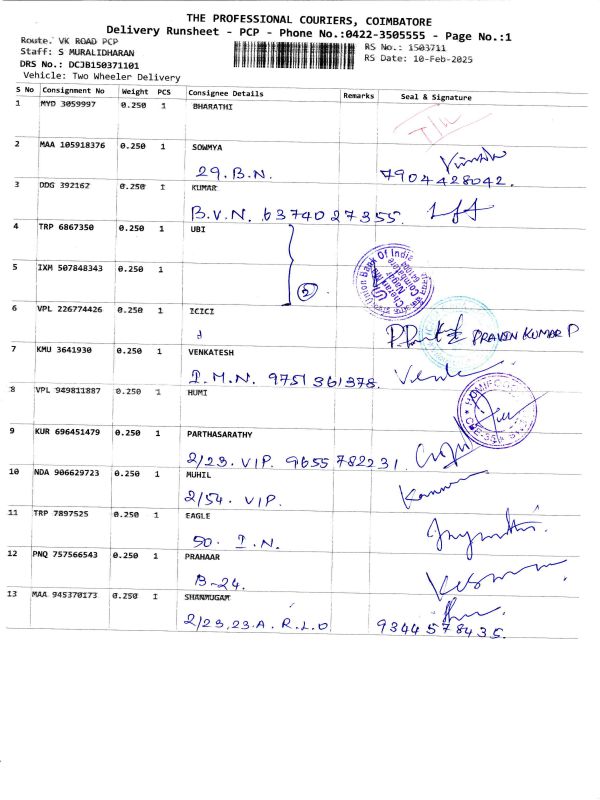 THE PROFESSIONAL COURIERS, COIMBATORE
Delivery Runsheet - PCP - Phone No.:0422-3505555 - Page No.:1
Route: VK ROAD PCP
RS No.: 1503711
Staff: S MURALIDHARAN
RS Date: 10-Feb-2025
DRS No.: DCJB150371101
Vehicle: Two Wheeler Delivery
S No Consignment No Weight PCS Consignee Details Remarks Seal & Signature
1 MYD 3059997 0.250 1 BHARATHI
2 MAA 105918376 0.250 1 SOWMYA
29. B.N. 7904428042.
3 DDG 392162 0.250 1 KUMAR
B.V.N. 6374027355.
4 TRP 6867350 0.250 1 UBI
5 IXM 507848343 0.250 1
2
Union Bank Of India
Coimbatore
6 VPL 226774426 0.250 1 ICICI
PRAVEN KUMAR P
7 KMU 3641930 0.250 1 VENKATESH
I.M.N. 9751361378.
8 VPL 949811887 0.250 1 HUMI
9 KUR 696451479 0.250 1 PARTHASARATHY
2/23. VIP. 9655782231.
10 NDA 906629723 0.250 1 MUHIL
2/54. VIP.
11 TRP 7897525 0.250 1 EAGLE
50. I.N.
12 PNQ 757566543 0.250 1 PRAHAAR
B-24.
13 MAA 945370173 0.250 1 SHANMUGAM
2/23,23.A. R.L.O. 9344578435.